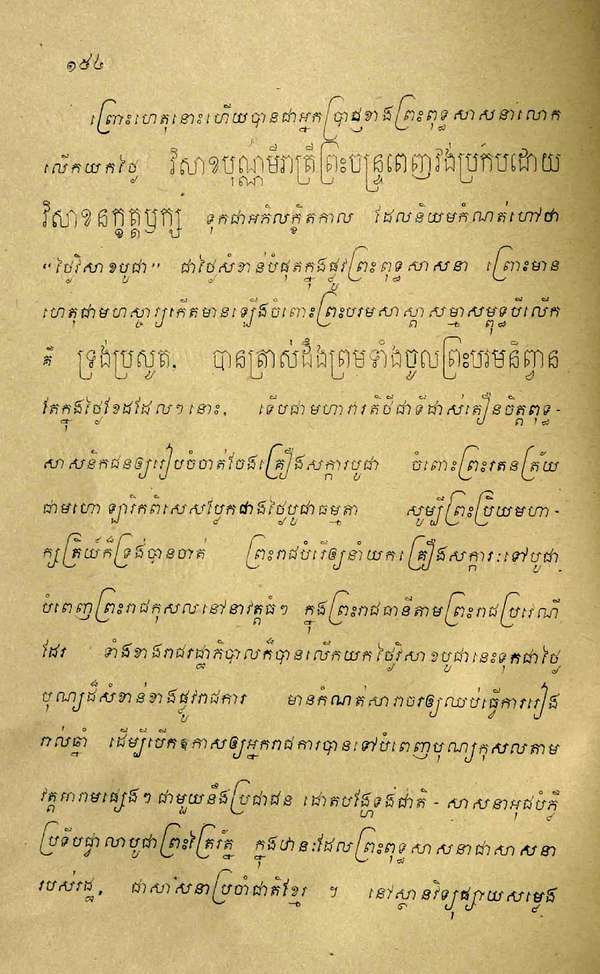 ១៥៤
ព្រោះហេតុនោះហើយបានជាអ្នកប្រាជ្ញខាងព្រះពុទ្ធសាសនាលោក
លើកយកថ្ងៃ វិសាខបុណ្ណមីរាត្រីព្រះចន្ទ្រពេញវង់ប្រកបដោយ
វិសាខនក្ខត្តឫក្ស ទុកជាអភិលក្ខិតកាល ដែលនិយមកំណត់ហៅថា
“ថ្ងៃវិសាខបូជា” ជាថ្ងៃសំខាន់បំផុតក្នុងផ្លូវព្រះពុទ្ធសាសនា ព្រោះមាន
ហេតុជាមហស្ចារ្យកើតមានឡើងចំពោះព្រះបរមសាស្តាសម្មាសម្ពុទ្ធបីលើក
គឺ ទ្រង់ប្រសូត, បានត្រាស់ដឹងព្រមទាំងចូលព្រះបរមនិព្វាន
តែក្នុងថ្ងៃខែដដែលៗនោះ, ទើបជាមហាវារតិថីជាទីដាស់តឿនចិត្តពុទ្ធ-
សាសនិកជនឲ្យរៀបចំចាត់ចែងគ្រឿងសក្ការបូជា ចំពោះព្រះរតនត្រ័យ
ជាមហោឡារិកពិសេសប្លែកជាងថ្ងៃបូជាធម្មតា សូម្បីព្រះប្រិយមហា-
ក្សត្រិយ៍ក៏ទ្រង់បានចាត់ ព្រះរាជបំរើឲ្យនាំយកគ្រឿងសក្ការៈទៅបូជា
បំពេញព្រះរាជកុសលនៅនាវត្តធំៗ ក្នុងព្រះរាជធានីតាមព្រះរាជប្រវេណី
ដែរ ទាំងខាងរាជរដ្ឋាភិបាលក៏បានលើកយកថ្ងៃវិសាខបូជានេះទុកជាថ្ងៃ
បុណ្យដ៏សំខាន់ខាងផ្លូវរាជការ មានកំណត់សារាចរឲ្យឈប់ធ្វើការរៀង
រាល់ឆ្នាំ ដើម្បីបើកឱកាសឲ្យអ្នករាជការបានទៅបំពេញបុណ្យកុសលតាម
វត្តអារាមផ្សេងៗជាមួយនឹងប្រជាជន ដោតបង្ហែទង់ជាតិ - សាសនាអុជបំភ្លឺ
ប្រទីបជ្វាលាបូជាព្រះត្រៃរ័ត្ន ក្នុងឋានៈដែលព្រះពុទ្ធសាសនាជាសាសនា
របស់រដ្ឋ, ជាសាសនាប្រចាំជាតិខ្មែរ ។ នៅស្ថានវិទ្យុផ្សាយសម្លេង